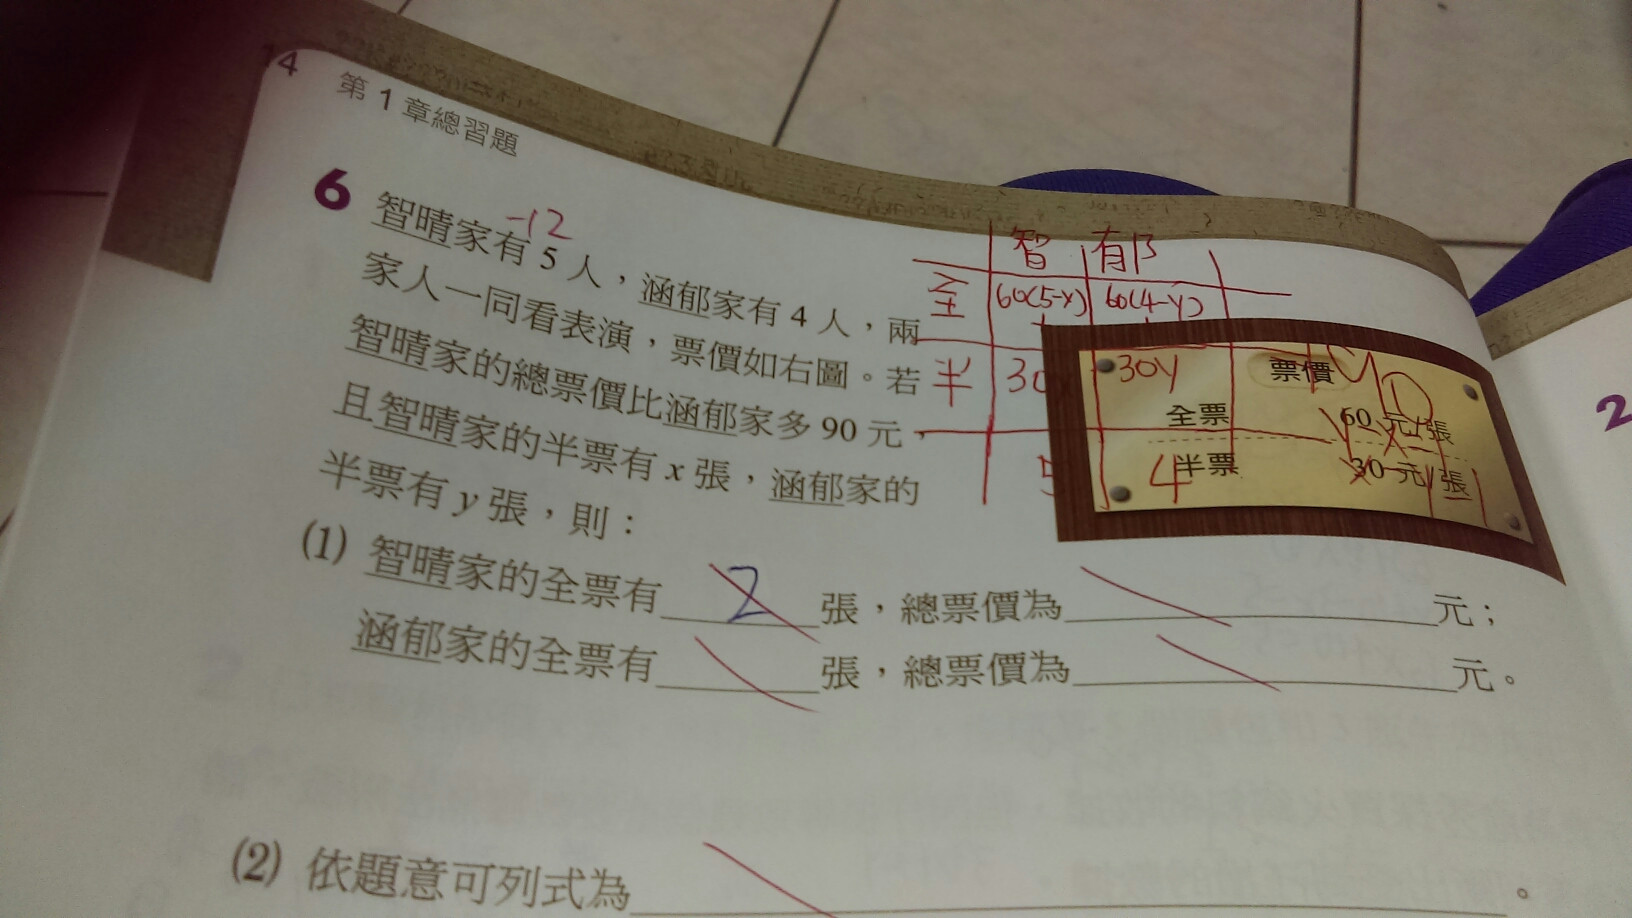 14
第 1 章總習題
-12
6 智晴家有 5 人，涵郁家有 4 人，兩
家人一同看表演，票價如右圖。若
智晴家的總票價比涵郁家多 90 元，
且智晴家的半票有 x 張，涵郁家的
半票有 y 張，則：
智 郁
全 60(5-x) 60(4-y)
半 30 30y
5 4
票價
全票 60 元/張
半票 30 元/張
(1) 智晴家的全票有 2 張，總票價為 元；
涵郁家的全票有 張，總票價為 元。
(2) 依題意可列式為 。
2